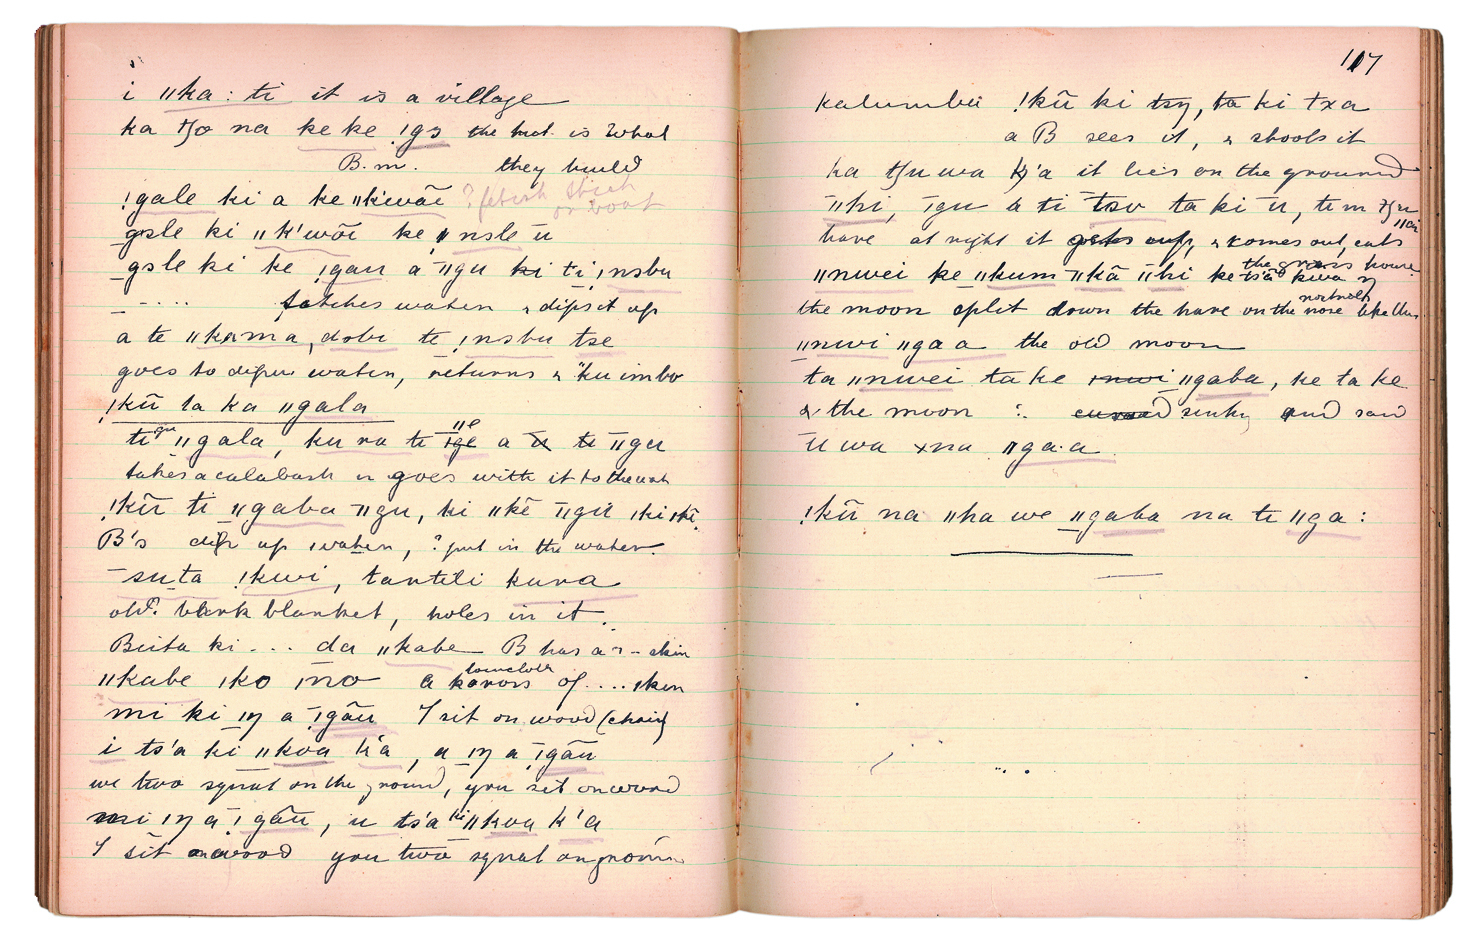 i ǁka : ti it is a village
ka tʃo na ke ke ǃgɔ the hut is what
B. m. they build
ǃgale ki a ke ǁkiwãi ? fetish stick
or root
gɔle ki ǁk'wãi ke nɔle ū
gɔle ki ke ǃgau a ǁgu ki ti ǃnɔbu
– .... fetches water & dips it up
a te ǁkama, dobi te ǃnɔbu tse
goes to dip up water, returns & ǁku imbo
ǃkū ta ka ǁgala
ti gu ǁgala, ku ra te ǀge ǁe a u te ǁgu
takes a calabash & goes with it to the
ǃkū ti ǁgaba ǁgu, ki ǁkē ǁgū ǀki ǀkī
B's dip up water, ? put in the water
suta ǃkwi, tanteli kura
old. blank blanket, holes in it.
Buta ki ... da ǁkabe B has a ... skin
ǁkabe ǀko ǀno a kaross loincloth of .... skin
mi ki ŋ a ǃgãu I sit on wood (chair)
i ts'a ki ǁkoa k'a, a ŋ a ǃgãu
we two squat on the ground, you sit on wood
mi ŋ a ǃgãu, u ts'a ki ǁkoa k'a
I sit on wood you two squat on ground
107
kalumba ǃkū ki tɜŋ, ta ki txa
a B sees it, & shoots it
ka tʃu wa k'a it lies on the ground
ǁhi, ǀgu a ti tso ta ki u, te m tʃu
ǁai
hare at night it gets up, & comes out, eats
the grass house
ǁnwei ke ǁkum ǁkā ǁhi ke ts'a kwa ŋ
the moon split down the hare on the nose nostrils like this
ǁnwi ǁga a the old moon
ta ǁnwei ta ke ǀnwi ǁgaba, ke ta ke
& the moon :. cursed sinks, and said
u wa xna ǁga·a
ǃkū na ǁha we ǁgaba na te ǁga :